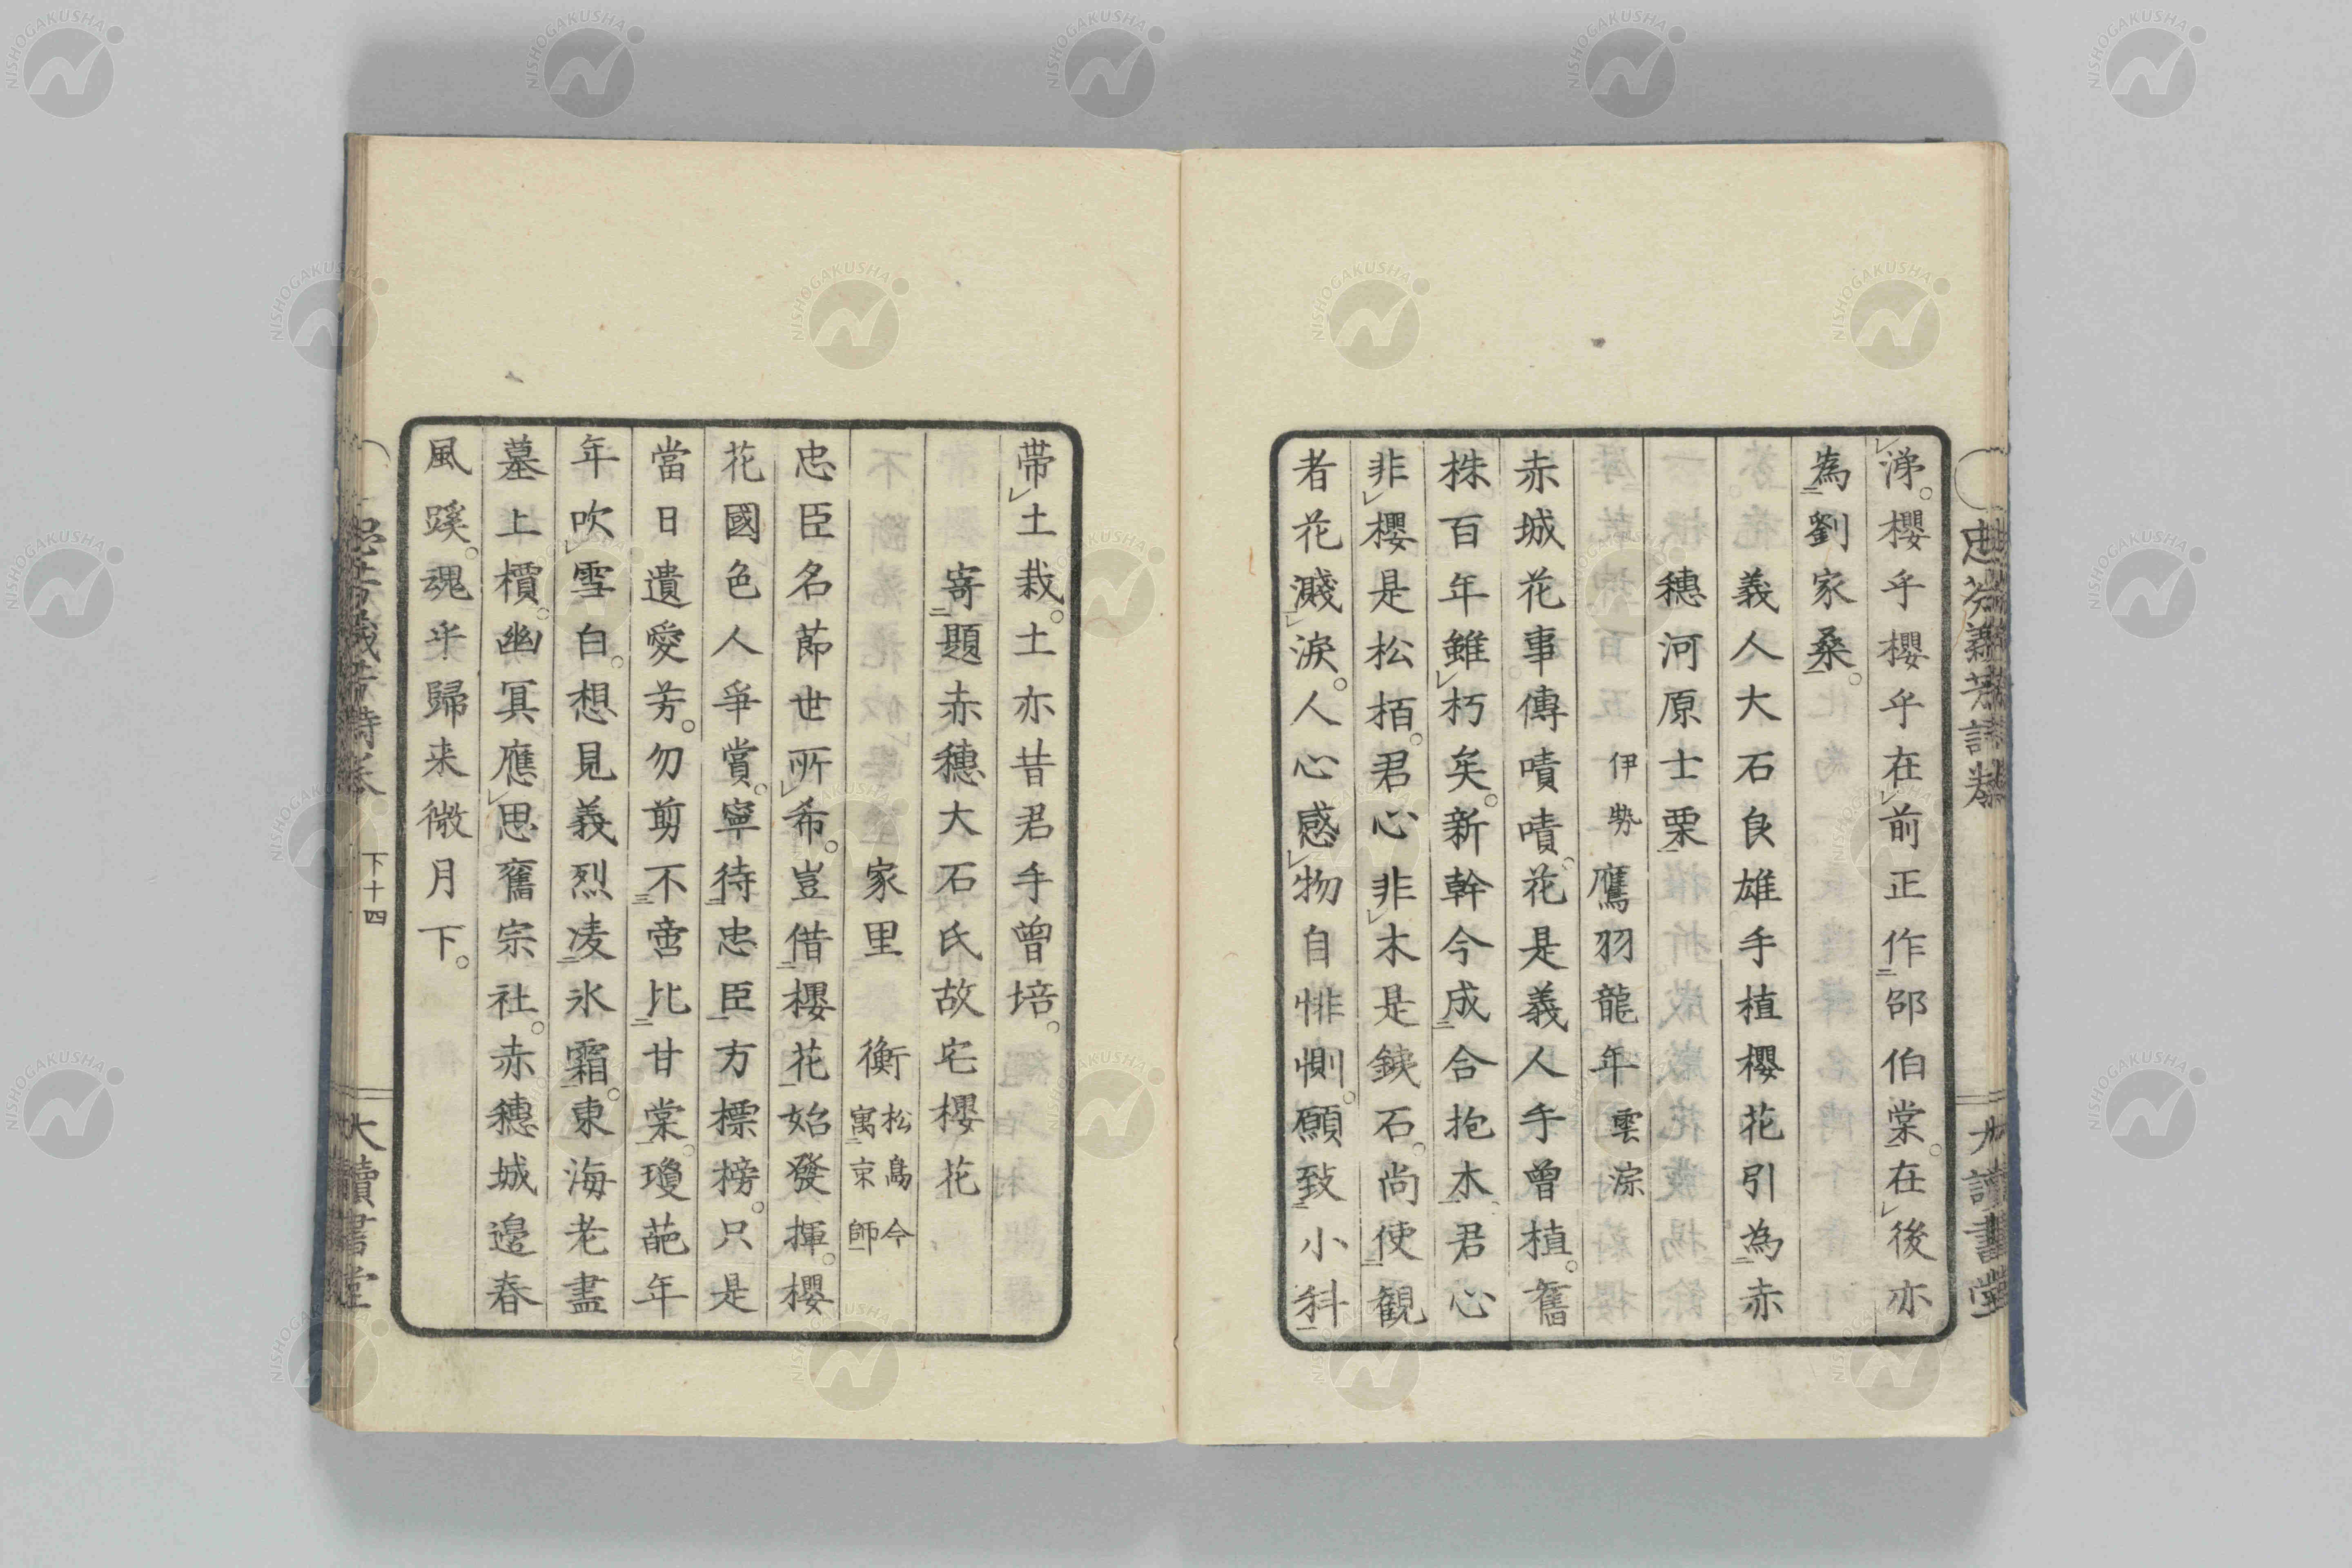 涕。櫻乎櫻乎在前正作邵伯棠。在後亦
為劉家桑。
義人大石良雄手植櫻花引為赤
穗河原士栗
伊勢 鷹羽龍年 雲淙
赤城花事傳嘖嘖。花是義人手曾植。舊
株百年雖朽矣。新幹今成合抱木。君心
非櫻是松栢。君心非木是鐵石。尚使觀
者花濺淚。人心感物自悱惻。願致小科
帶土栽。土亦昔君手曾培。
寄題赤穗大石氏故宅櫻花
家里 衡 松島今寓京師
忠臣名節世所希。豈借櫻花始發揮。櫻
花國色人爭賞。寧待忠臣方標榜。只是
當日遺愛芳。勿剪不啻比甘棠。瓊葩年
年吹雪白。想見義烈凌氷霜。東海老盡
墓上檟。幽冥應思舊宗社。赤穗城邊春
風蹊。魂乎歸来微月下。
忠芬義芳詩卷
下十四
大讀書堂
NISHOGAKUSHA